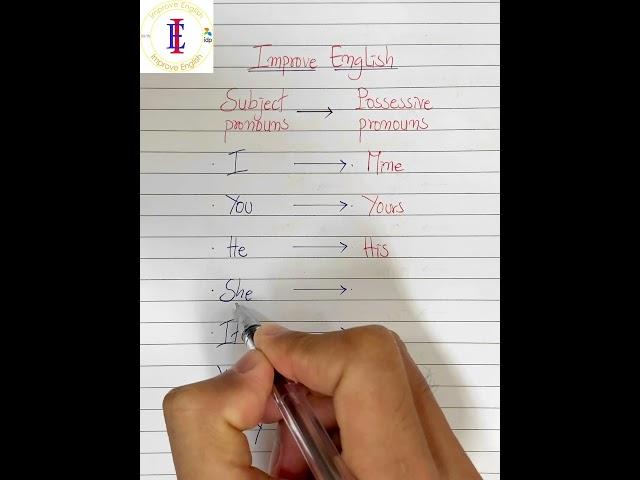 Improve English
IE
idp
Improve English
Improve English
Subject → Possessive
pronouns pronouns
· I → · Mine
· You → · Yours
· He → · His
· She → ·
· It →